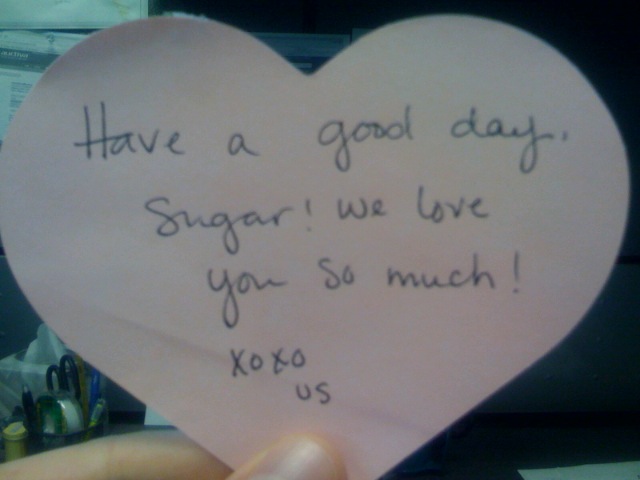 Have a good day,
Sugar! We love
you so much!
xoxo
us